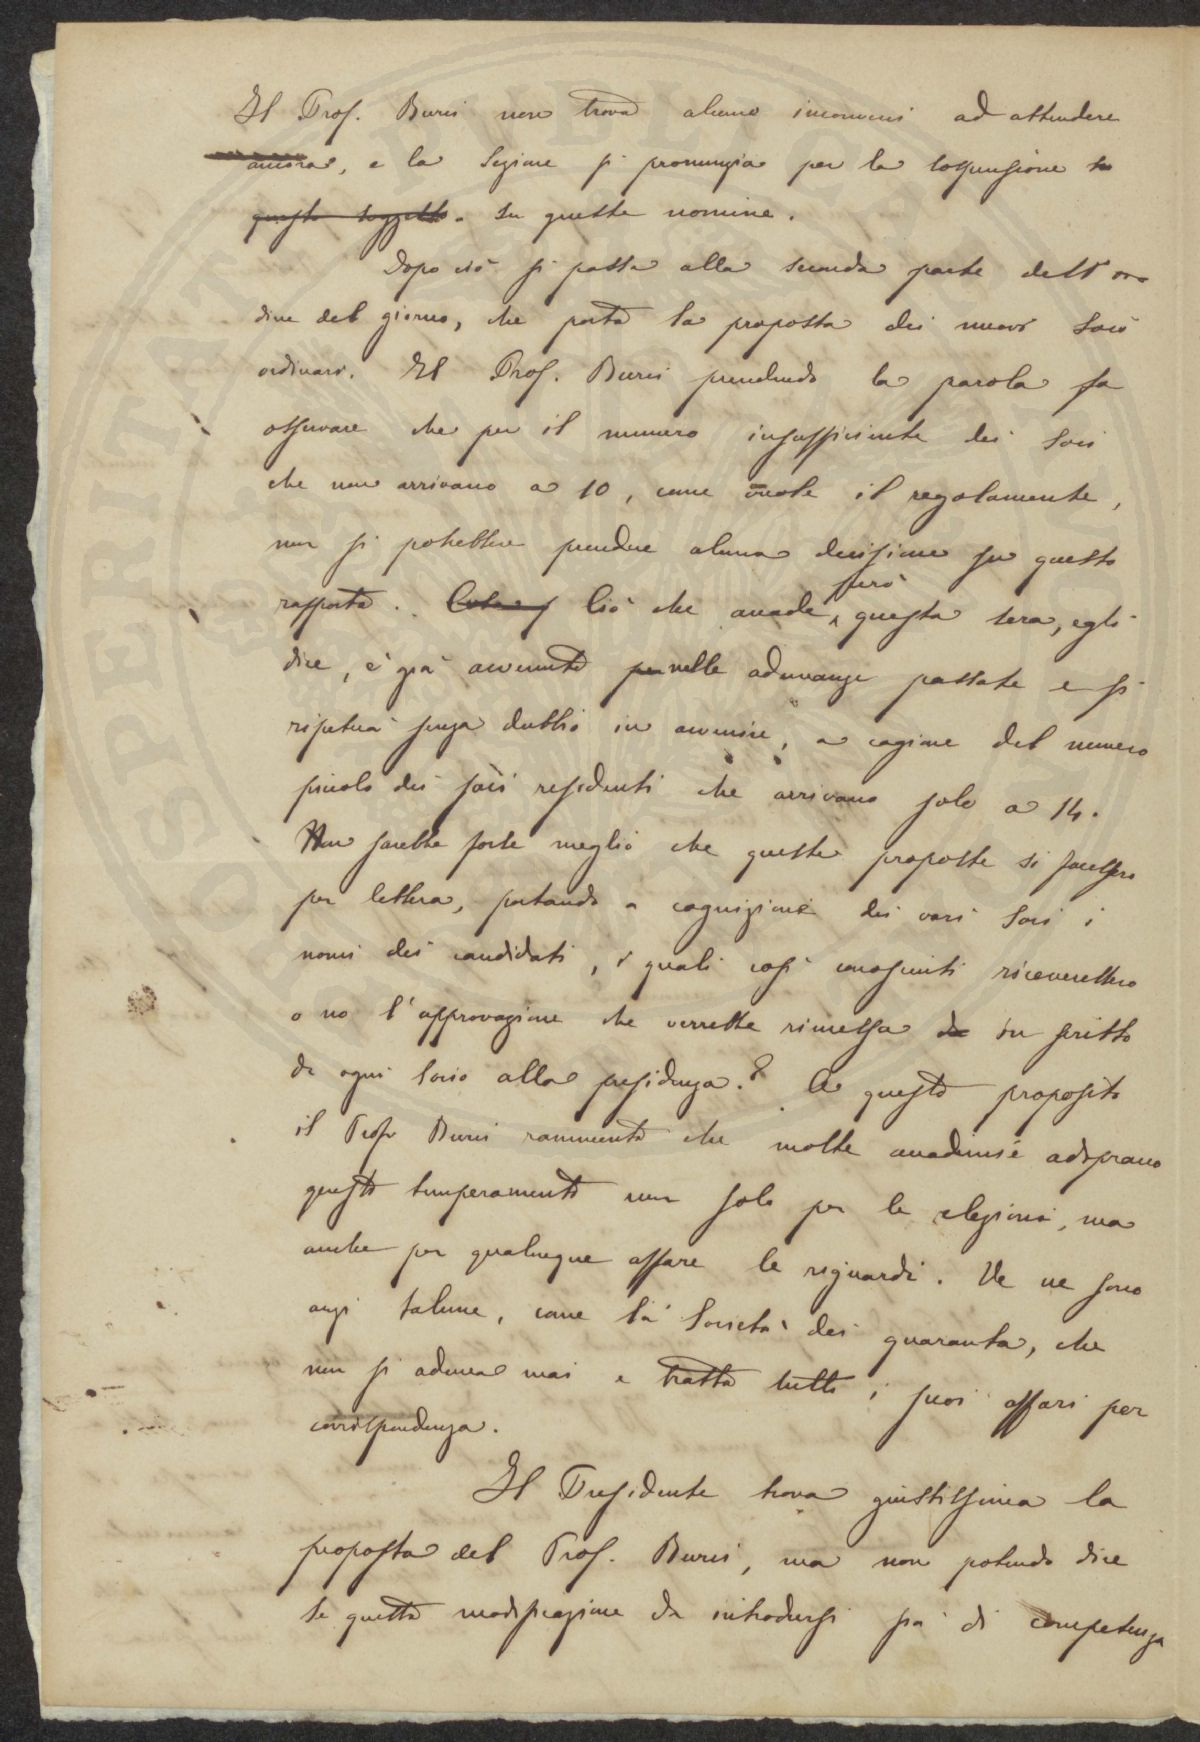 Il Prof. Bucci non trova alcuno inconveni ad attendere
ancora, e la Sezione si pronunzia per la sospensione su
questo soggetto. su queste nomine.
Dopo ciò si passa alla seconda parte dell'or
dine del giorno, che porta la proposta dei nuovi Soci
ordinari. Il Prof. Bucci prendendo la parola fa
osservare che per il numero insufficiente dei Soci
che non arrivano a 10, come vuole il regolamento,
non si potrebbe prendere alcuna decisione su questo
rapporto. Ciò che accade però questa sera, egli
dice, è già avvenuto nelle adunanze passate e si
ripeterà senza dubbio in avvenire, a cagione del numero
piccolo dei soci residenti che arrivano solo a 14.
Non sarebbe forse meglio che queste proposte si facessero
per lettera, portando a cognizione dei vari Soci i
nomi dei candidati, i quali così conosciuti riceverebbero
o no l'approvazione che verrebbe rimessa in scritto
da ogni Socio alla presidenza? A questo proposito
il Prof Bucci rammenta che molte accademie adoprano
questo temperamento non solo per le elezioni, ma
anche per qualunque affare le riguardi. Ve ne sono
anzi talune, come la Società dei quaranta, che
non si aduna mai e tratta tutti i suoi affari per
corrispondenza.
Il Presidente trova giustissima la
proposta del Prof. Bucci, ma non potendo dire
se questa modificazione da introdursi sia di competenza